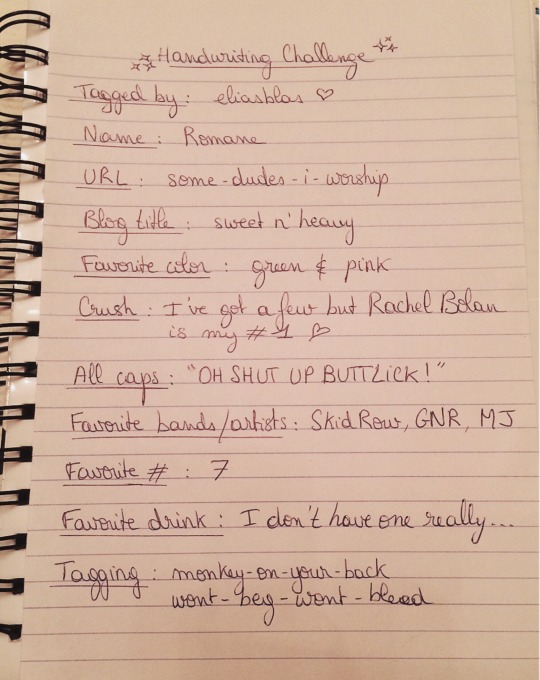 Handwriting Challenge
Tagged by : eliasblas ♡
Name : Romane
URL : some-dudes-i-worship
Blog title : sweet n' heavy
Favorite color : green & pink
Crush : I've got a few but Rachel Bolan
is my #1 ♡
All caps : "OH SHUT UP BUTTLiCK!"
Favorite bands/artists : Skid Row, GNR, MJ
Favorite # : 7
Favorite drink : I don't have one really...
Tagging : monkey-on-your-back
wont-beg-wont-bleed